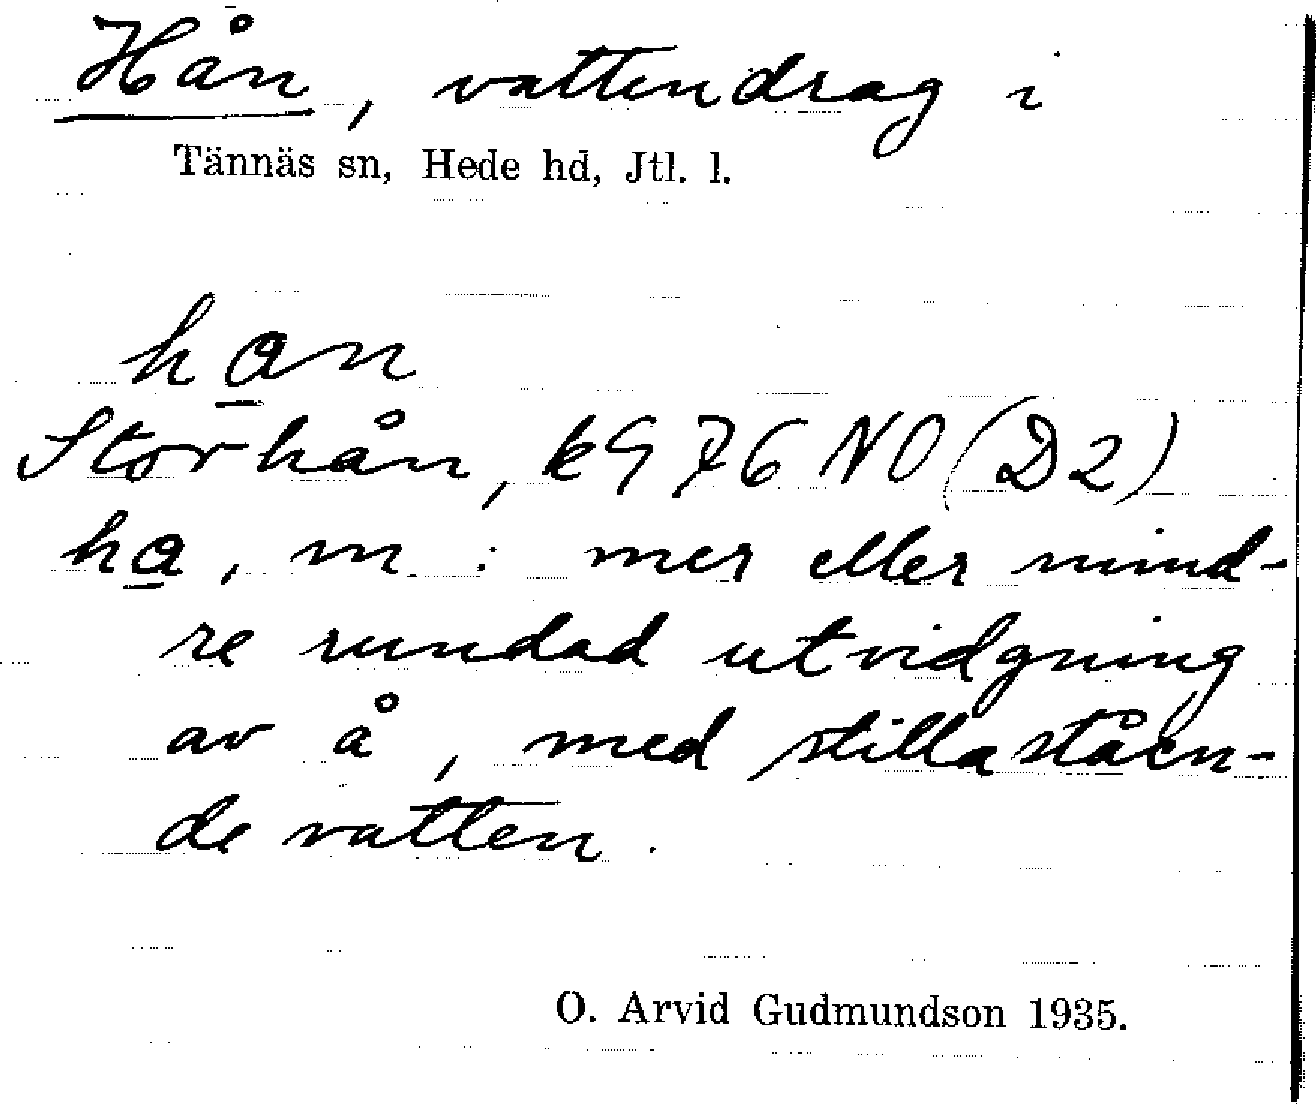 Hån, vattendrag i
Tännäs sn, Hede hd, Jtl. l.
han
Storhån, k976 NO (D2)
ha, m. : mer eller mind-
re rundad utvidgning
av å, med stillaståen-
de vatten.
O. Arvid Gudmundson 1935.